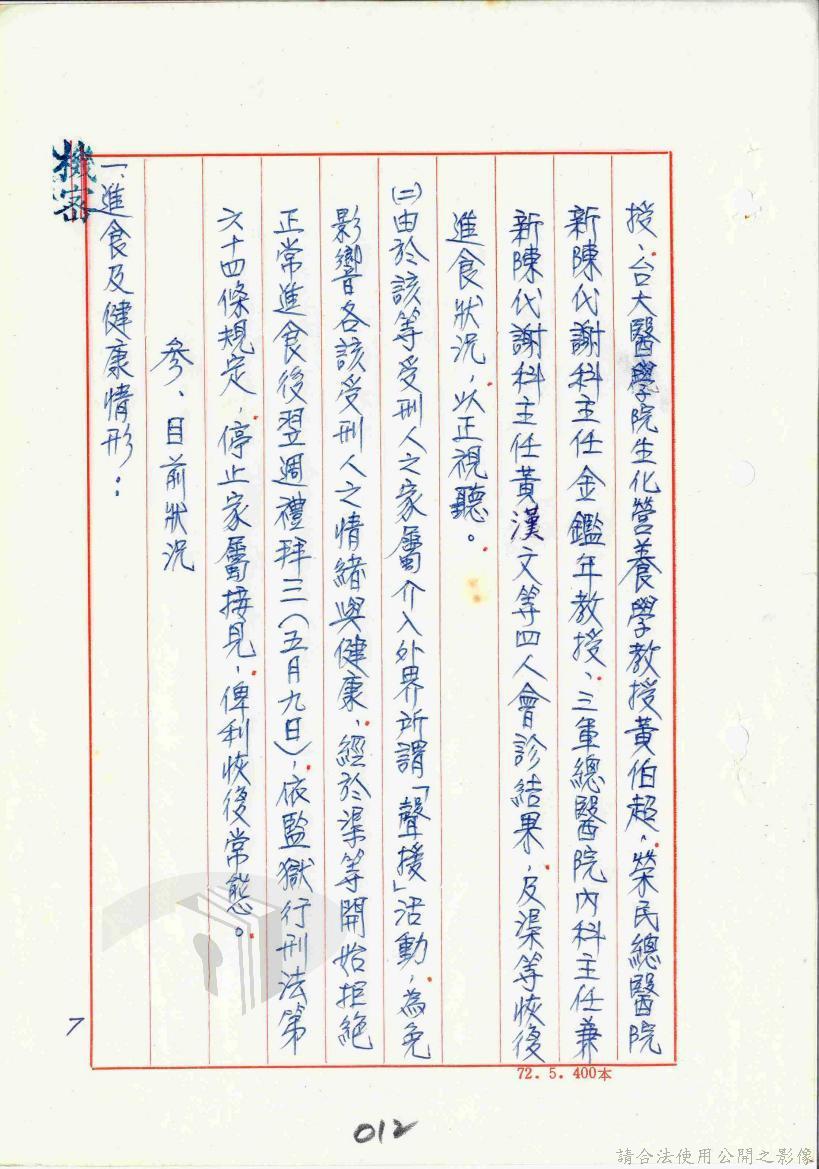 機密
授、台大醫學院生化營養學教授黃伯超，榮民總醫院
新陳代謝科主任金鑑年教授、三軍總醫院內科主任兼
新陳代謝科主任黃漢文等四人會診結果，及渠等恢復
進食狀況，以正視聽。
㈡由於該等受刑人之家屬介入外界所謂「聲援」活動，為免
影響各該受刑人之情緒與健康，經於渠等開始拒絕
正常進食後翌週禮拜三（五月九日），依監獄行刑法第
六十四條規定，停止家屬接見，俾利恢復常態。
參、目前狀況
一、進食及健康情形：
7
72.5.400本
012
請合法使用公開之影像